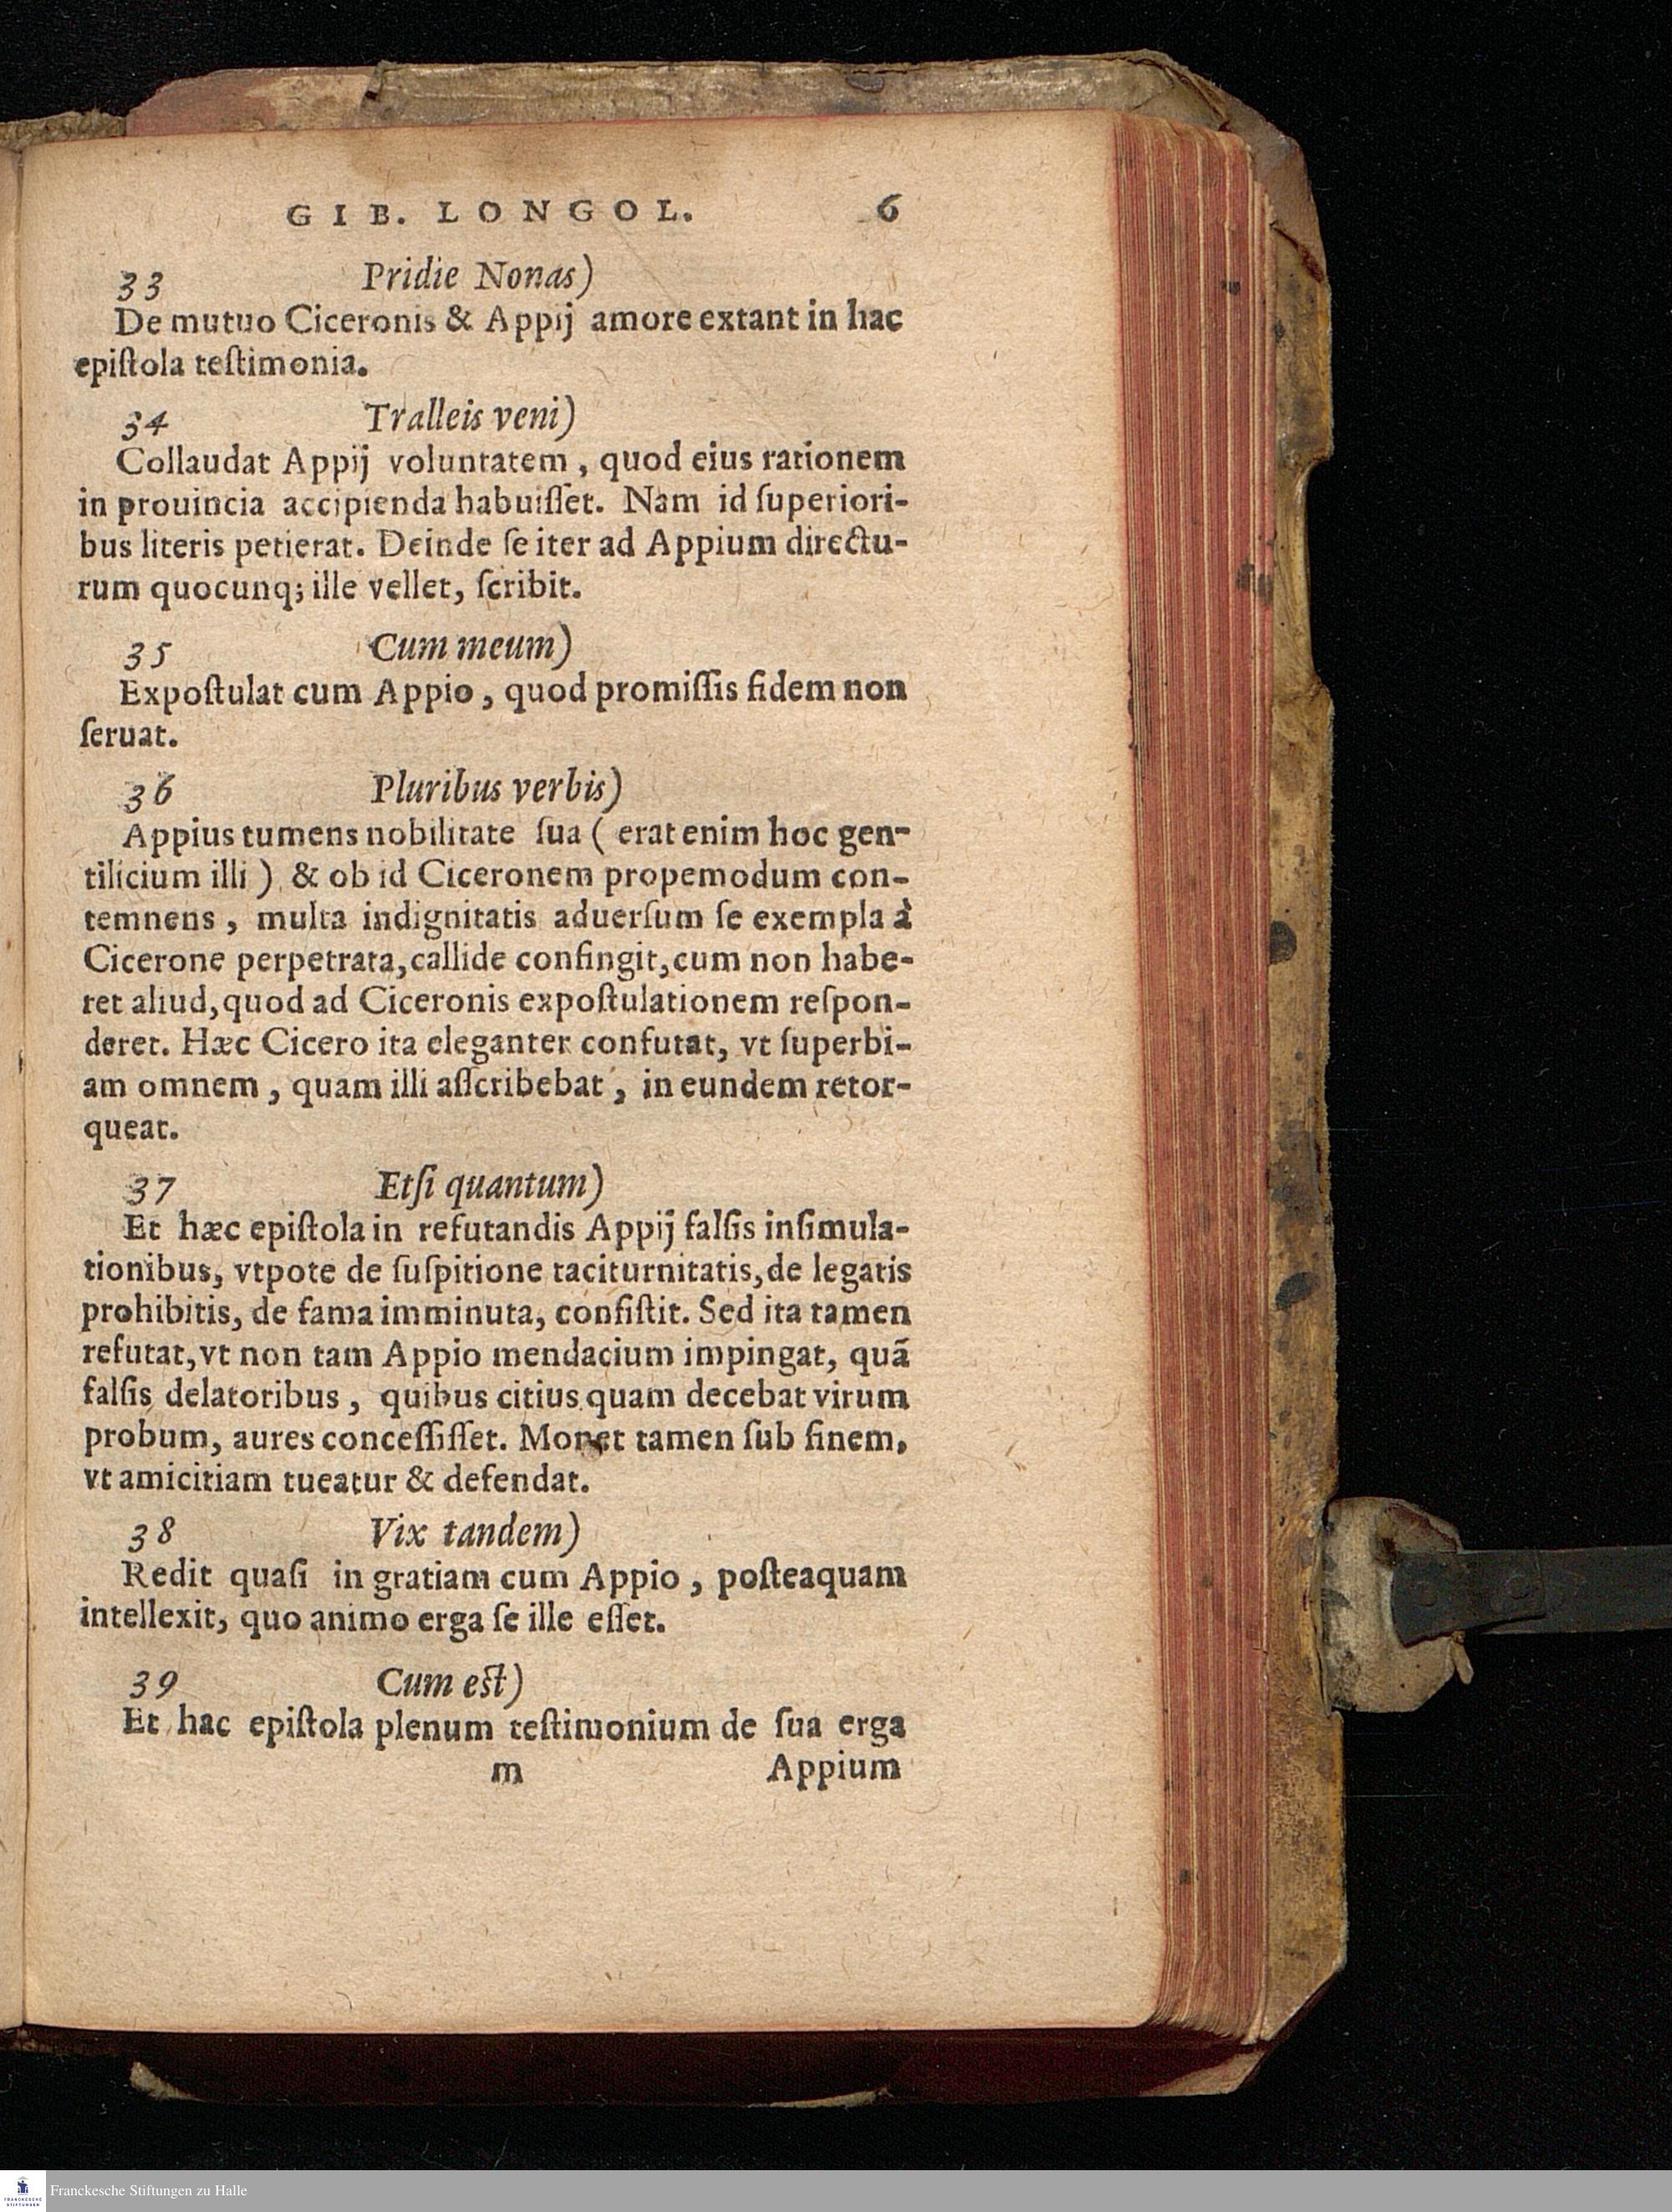 GIB. LONGOL. 6
33 Pridie Nonas)
De mutuo Ciceronis & Appij amore extant in hac
epiſtola teſtimonia.
34 Tralleis veni)
Collaudat Appij voluntatem, quod eius rationem
in prouincia accipienda habuiſſet. Nam id ſuperiori-
bus literis petierat. Deinde ſe iter ad Appium directu-
rum quocunq; ille vellet, ſcribit.
35 Cum meum)
Expoſtulat cum Appio, quod promiſſis fidem non
ſeruat.
36 Pluribus verbis)
Appius tumens nobilitate ſua (erat enim hoc gen-
tilicium illi) & ob id Ciceronem propemodum con-
temnens, multa indignitatis aduerſum ſe exempla à
Cicerone perpetrata, callide confingit, cum non habe-
ret aliud, quod ad Ciceronis expoſtulationem reſpon-
deret. Hæc Cicero ita eleganter confutat, vt ſuperbi-
am omnem, quam illi aſſcribebat, in eundem retor-
queat.
37 Etſi quantum)
Et hæc epiſtola in refutandis Appij falſis inſimula-
tionibus, vtpote de ſuſpitione taciturnitatis, de legatis
prohibitis, de fama imminuta, conſiſtit. Sed ita tamen
refutat, vt non tam Appio mendacium impingat, quã
falſis delatoribus, quibus citius quam decebat virum
probum, aures conceſſiſſet. Monet tamen ſub finem,
vt amicitiam tueatur & defendat.
38 Vix tandem)
Redit quaſi in gratiam cum Appio, poſteaquam
intellexit, quo animo erga ſe ille eſſet.
39 Cum eſt)
Et hac epiſtola plenum teſtimonium de ſua erga
m Appium
FRANCKESCHE STIFTUNGEN
Franckesche Stiftungen zu Halle